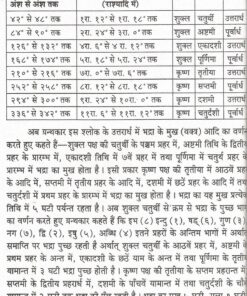 अंश से अंश तक (राश्यादि में)
४२° से ४८° तक १रा. १२° से १रा. १८° तक शुक्ल चतुर्थी उत्तरार्ध
८४° से ९०° तक २रा. २४° से ३रा. ०° तक शुक्ल अष्टमी पूर्वार्ध
१२६° से १३२° तक ४रा. ६° से ४ रा. १२° तक शुक्ल एकादशी उत्तरार्ध
१६८° से १७४° तक ५रा. १८° से ५रा. २४° तक शुक्ल पूर्णिमा पूर्वार्ध
२१०° से २१६° तक ७रा. ०° से ७रा. ६° तक कृष्ण तृतीया उत्तरार्ध
२५२° से २५८° तक ८रा. १२° से ८रा. १८° तक कृष्ण सप्तमी पूर्वार्ध
२९४° से ३००° तक ९रा. २४° से १०रा. ०° तक कृष्ण दशमी उत्तरार्ध
३३६° से ३४२° तक ११रा. ६° से ११रा. १२° तक कृष्ण चतुर्दशी पूर्वार्ध
अब ग्रन्थकार इस श्लोक के उत्तरार्ध में भद्रा के मुख (वक्त्र) आदि का वर्णन
करते हुए कहते हैं—शुक्ल पक्ष की चतुर्थी के पञ्चम प्रहर में, अष्टमी तिथि के द्वितीय
प्रहर के प्रारम्भ में, एकादशी तिथि के ७वें प्रहर में तथा पूर्णिमा में चतुर्थ प्रहर के
प्रारम्भ में भद्रा का मुख होता है। इसी प्रकार कृष्ण पक्ष की तृतीया में आठवें प्रहर
के आदि में, सप्तमी में तृतीय प्रहर के आदि में, दशमी में छठे प्रहर के आदि में तथा
चतुर्दशी में प्रथम प्रहर के प्रारम्भ में भद्रा का मुख होता है। भद्रा का यह मुख प्रत्येक
तिथि में ५ घटी पर्यन्त रहता है। अब श्लोक के अन्त में क्रम से भद्रा के पुच्छ भाग
का वर्णन करते हुए ग्रन्थकार कहते हैं कि इभ (८) इन्दु (१), षट् (६), गुण (३)
नग (७), द्वि (२), इषु (५), अब्धि (४) इतने प्रहरों के अन्तिम भागों में अर्थात्
समाप्ति पर भद्रा पुच्छ रहती है अर्थात् शुक्ल चतुर्थी के आठवें प्रहर में, अष्टमी के
प्रथम प्रहर के अन्त में, एकादशी के छठें याम के अन्त में तथा पूर्णिमा के तृतीय
यामान्त में ३ घटी भद्रा पुच्छ होती है। कृष्ण पक्ष की तृतीया के सप्तम प्रहरान्त में,
सप्तमी के द्वितीय प्रहरार्ध में, दशमी के पाँचवें यामान्त में तथा चतुर्दशी के चतुर्थ